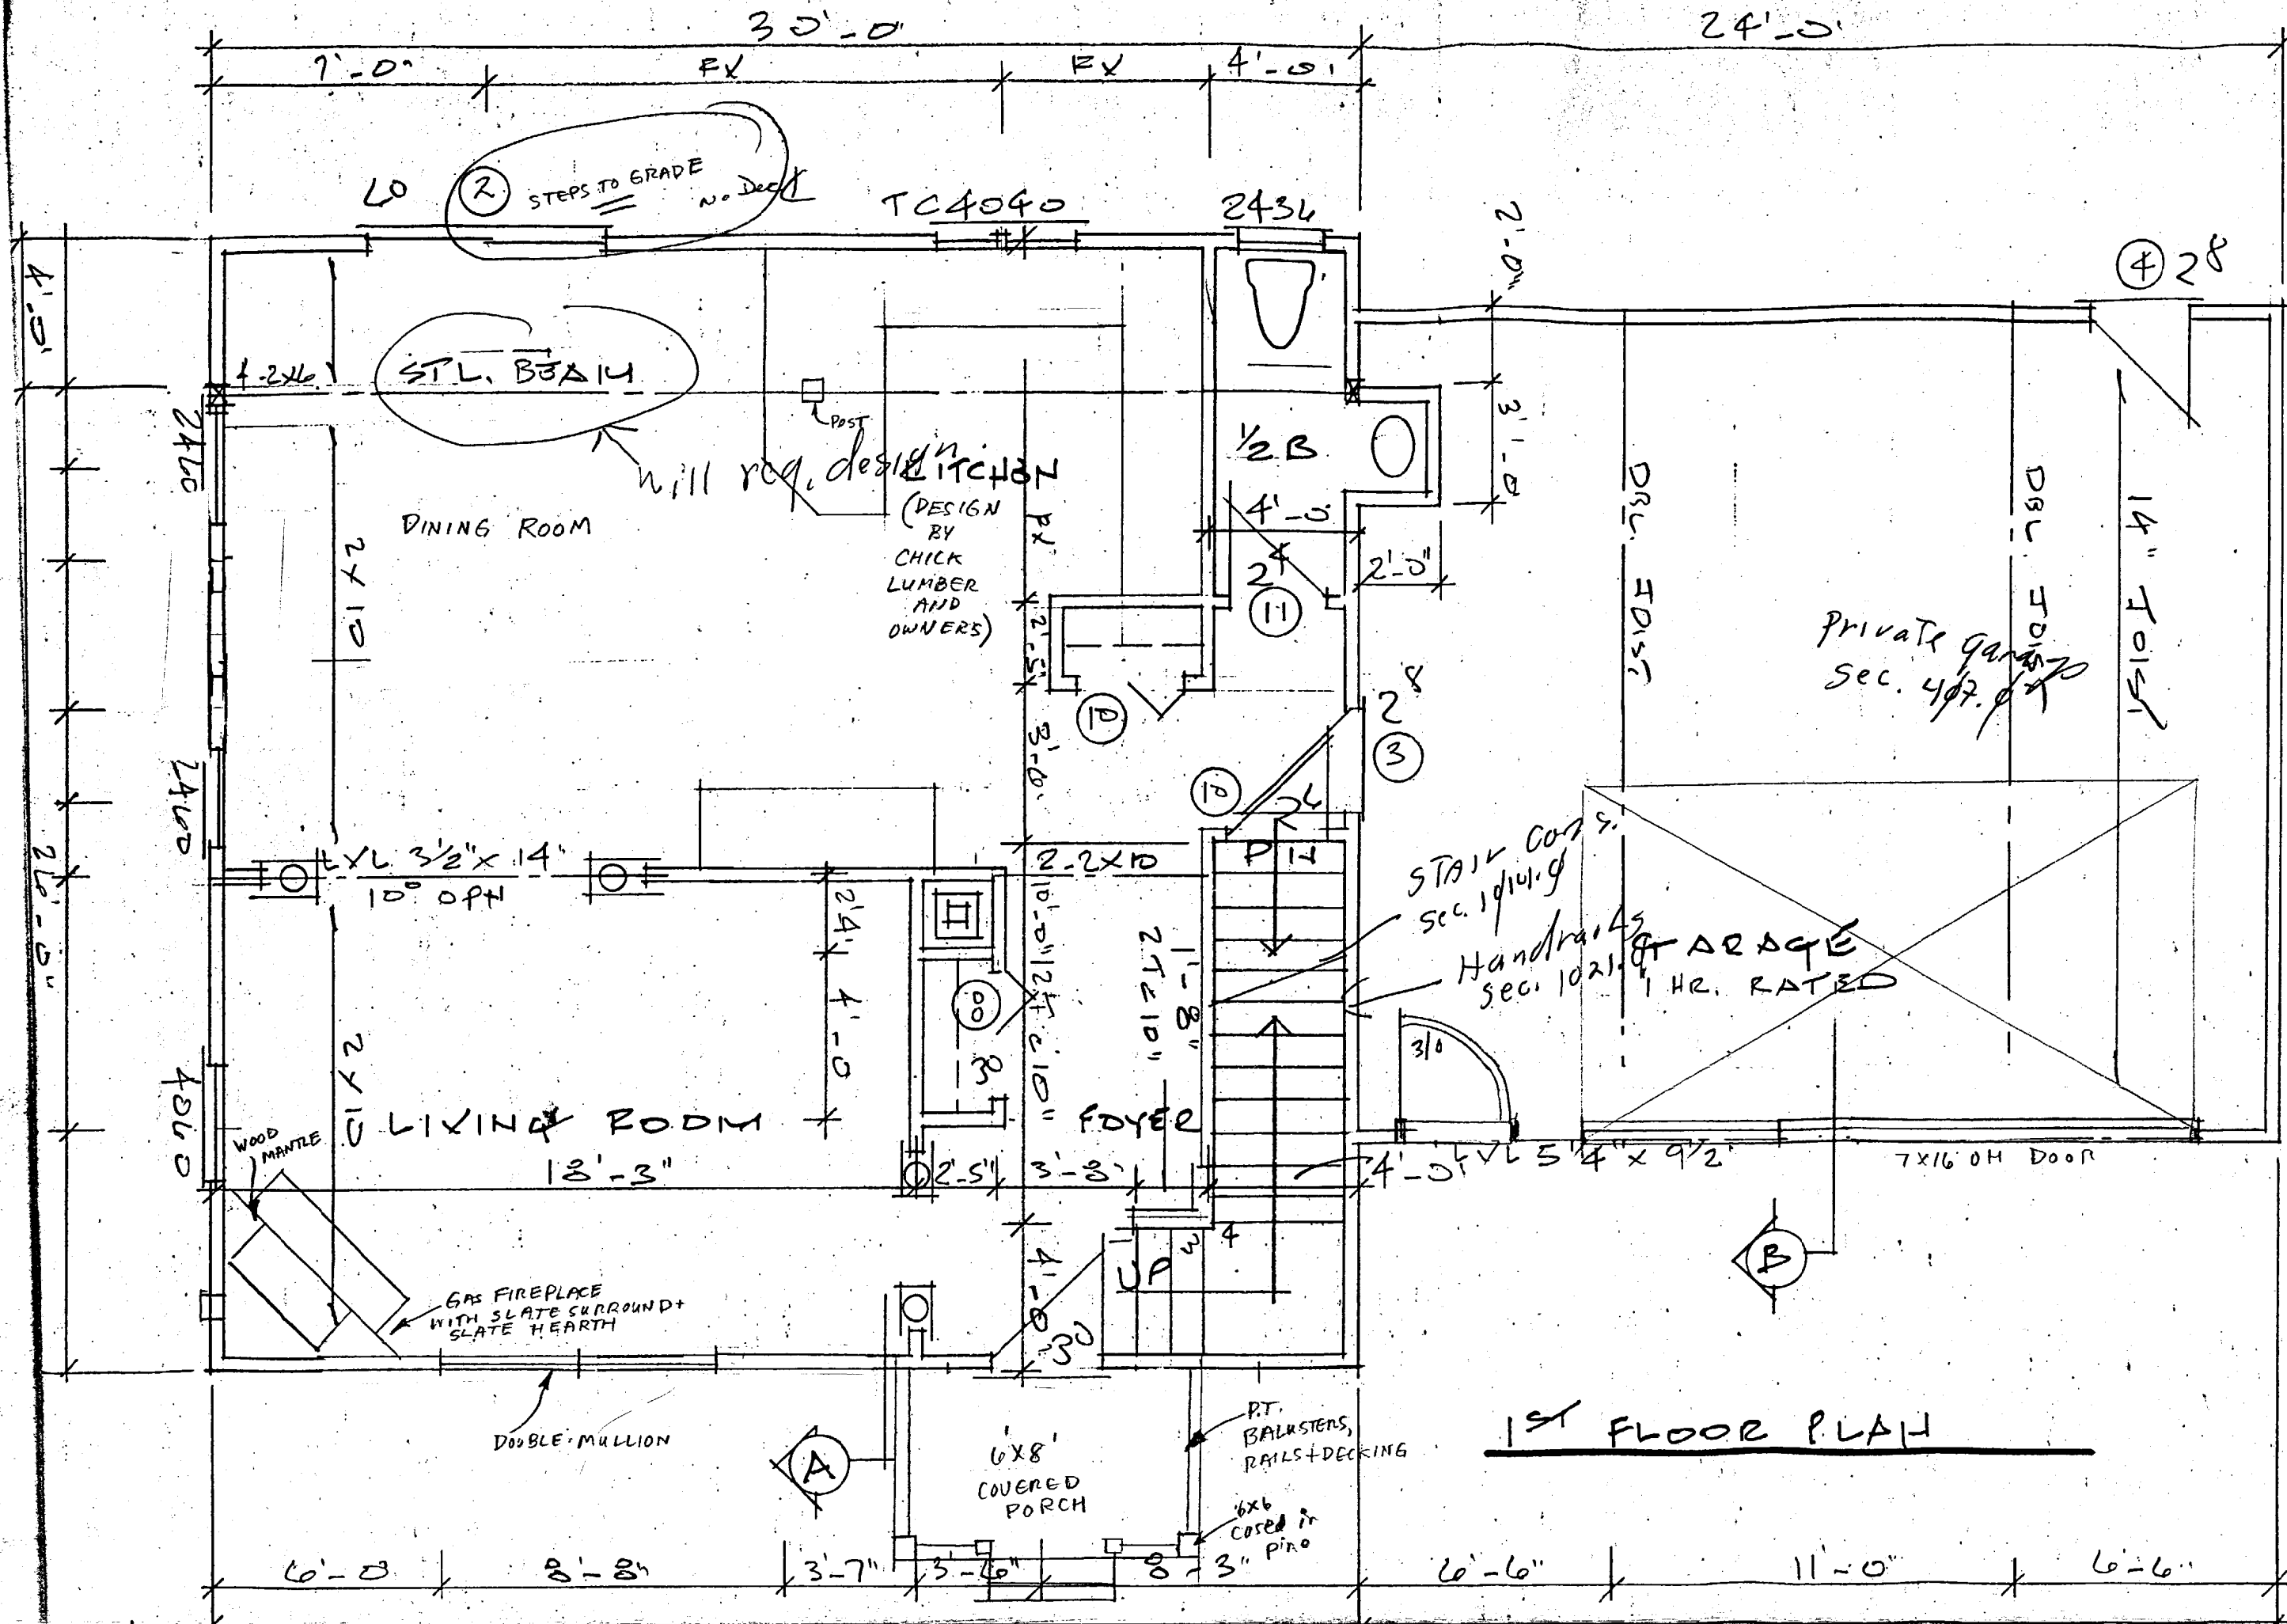 30'-0"
24'-0"
7'-0"
EX
EX
4'-0"
60
2
STEPS TO GRADE
No Deck
TC4040
2436
2'-0"
4
2⁸
4'-0"
4-2x6
STL. BEAM
POST
will req. design
KITCHEN
(DESIGN
BY
CHICK
LUMBER
AND
OWNERS)
1/2 B
3'-0"
2460
DINING ROOM
2x10
EX
4'-0"
2'-0"
2⁴
11
DBL. JOIST
DBL. JOIST
14" JOIST
Private garage
Sec. 407.0
2'-5"
10
3'-0"
2⁸
3
10
2460
26'-0"
LVL 3 1/2" x 14"
10⁰ OPN
2-2x10
STAIR Cons.
Sec. 1014.0
Handrails
Sec. 1021.0
GARAGE
1 HR. RATED
2'4"
4'-0
10'-0"
12T@10"
2T@10"
80
30
3/0
4060
WOOD
MANTLE
2x10
LIVING ROOM
FOYER
18'-3"
2'-5"
3'-8"
4'-0"
LVL 5 1/4" x 9 1/2"
7x16 OH DOOR
3
4
UP
4'-0
3⁰
GAS FIREPLACE
WITH SLATE SURROUND+
SLATE HEARTH
B
DOUBLE MULLION
A
6'x8'
COVERED
PORCH
P.T.
BALUSTERS,
RAILS+DECKING
6x6
cased in
pine
1ST FLOOR PLAN
6'-0
8'-8"
3'-7"
3'-6"
8'-3"
6'-6"
11'-0"
6'-6"